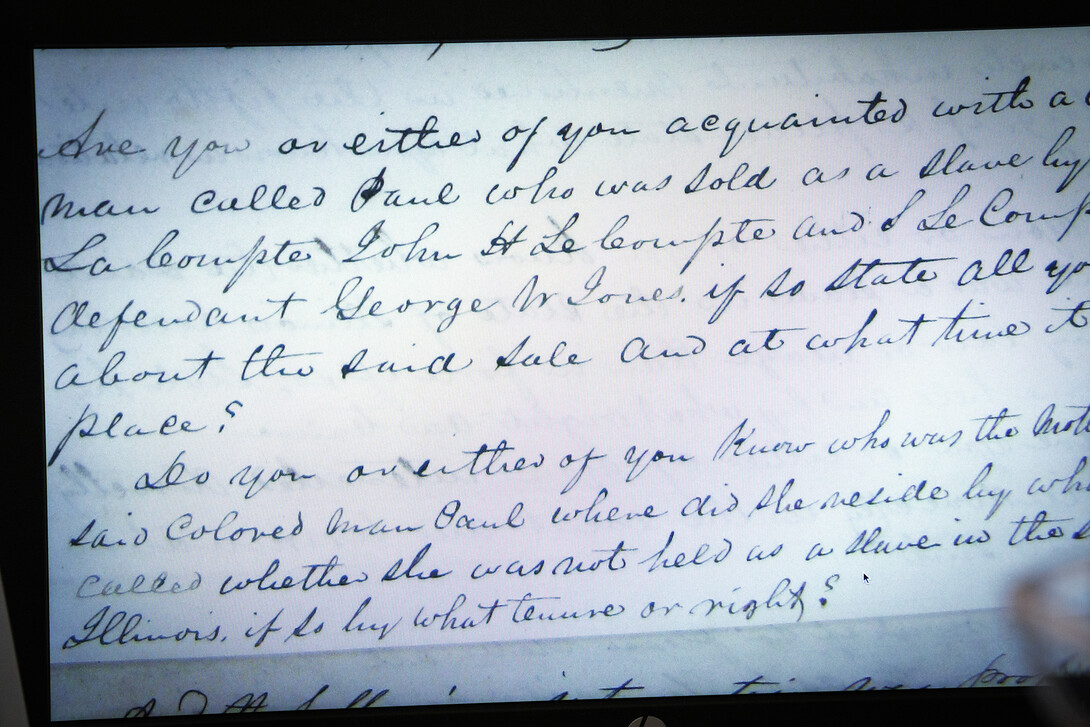 Are you or either of you acquainted with a
man called Paul who was sold as a slave by
La Compte John H Le Compte and S Le Comp
defendant George W Jones. if so state all yo
about the said sale and at what time it
place?
Do you or either of you Know who was the Mot
said Colored man Paul where did she reside by who
called whether she was not held as a slave in the s
Illinois. if so by what tenure or right?
hp